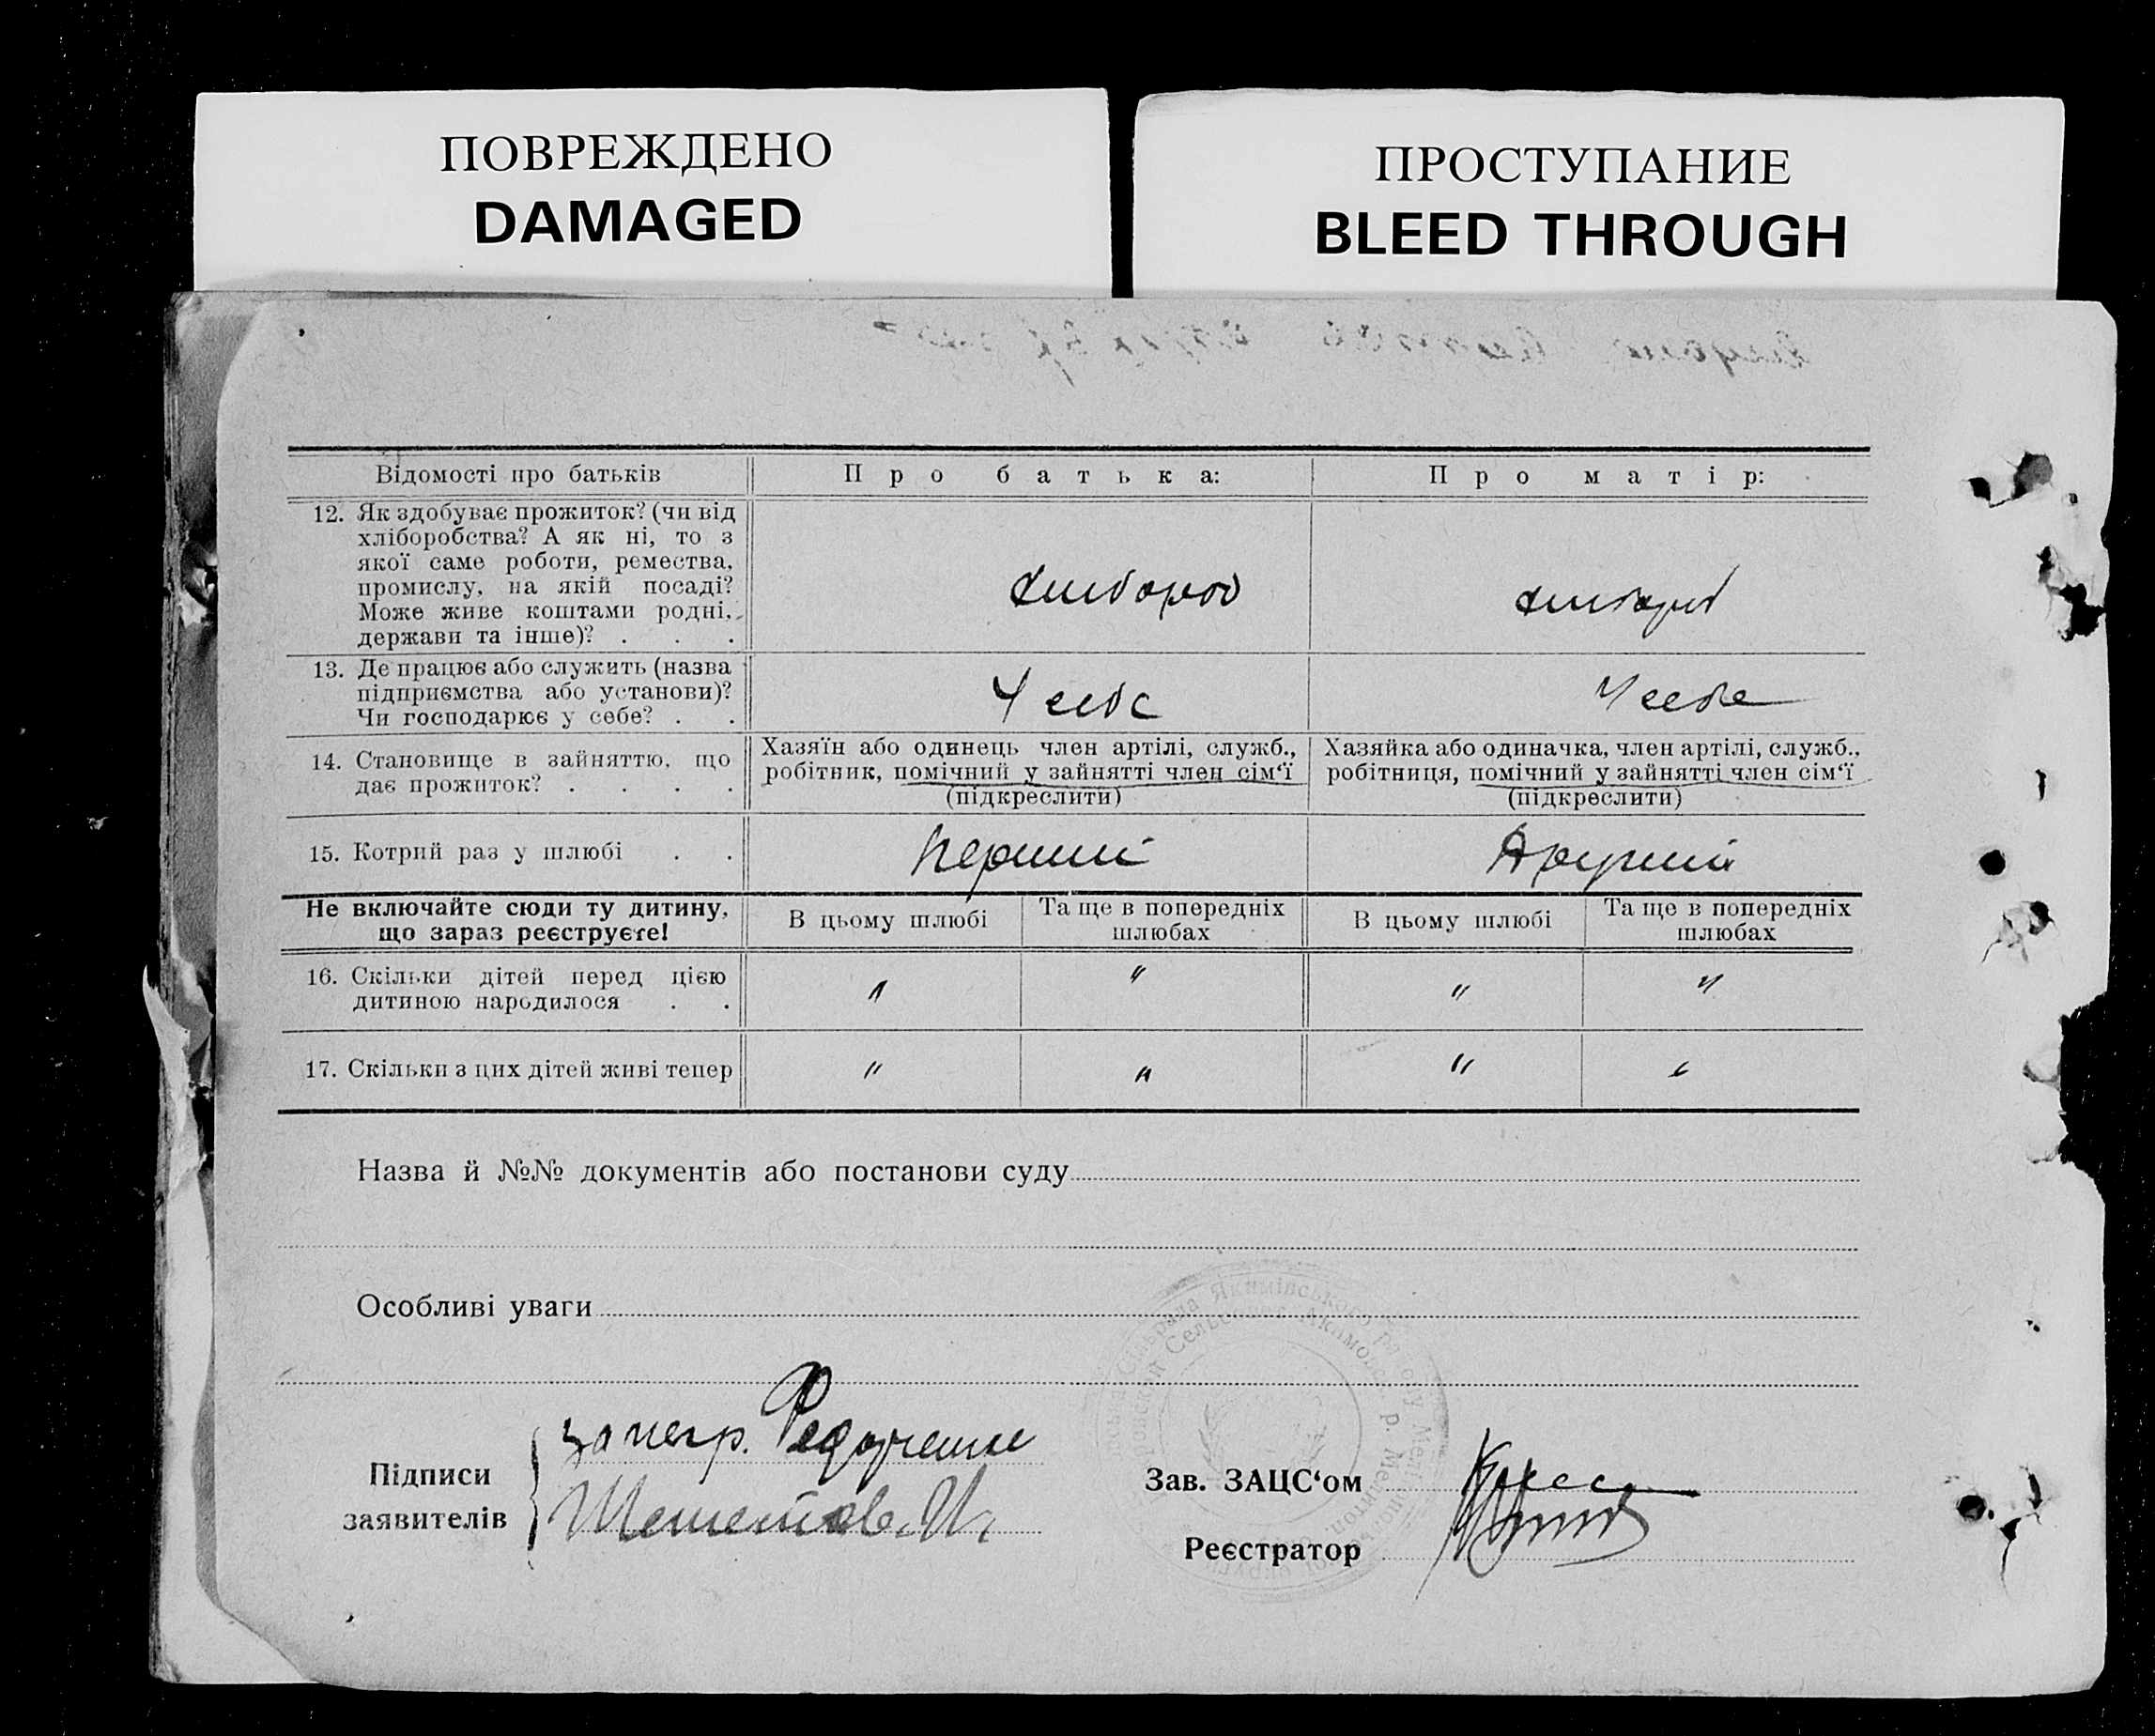 ПОВРЕЖДЕНО
DAMAGED
ПРОСТУПАНИЕ
BLEED THROUGH
Відомості про батьків
Про батька:
Про матір:
12. Як здобуває прожиток? (чи від
хліборобства? А як ні, то з
якої саме роботи, ремества,
промислу, на якій посаді?
Може живе коштами родні,
держави та інше)? . . .
13. Де працює або служить (назва
підприємства або установи)?
Чи господарює у себе? . .
У себе
У себе
14. Становище в зайняттю, що
дає прожиток? . . . .
Хазяїн або одинець член артілі, служб.,
робітник, помічний у зайнятті член сім‘ї
(підкреслити)
Хазяйка або одиначка, член артілі, служб.,
робітниця, помічний у зайнятті член сім‘ї
(підкреслити)
15. Котрий раз у шлюбі . .
Перший
Другий
Не включайте сюди ту дитину,
що зараз реєструєте!
В цьому шлюбі
Та ще в попередніх
шлюбах
В цьому шлюбі
Та ще в попередніх
шлюбах
16. Скільки дітей перед цією
дитиною народилося . .
" " " "
17. Скільки з цих дітей живі тепер
" " " "
Назва й №№ документів або постанови суду
Особливі уваги
Підписи
заявителів
Зав. ЗАЦС‘ом
Реєстратор